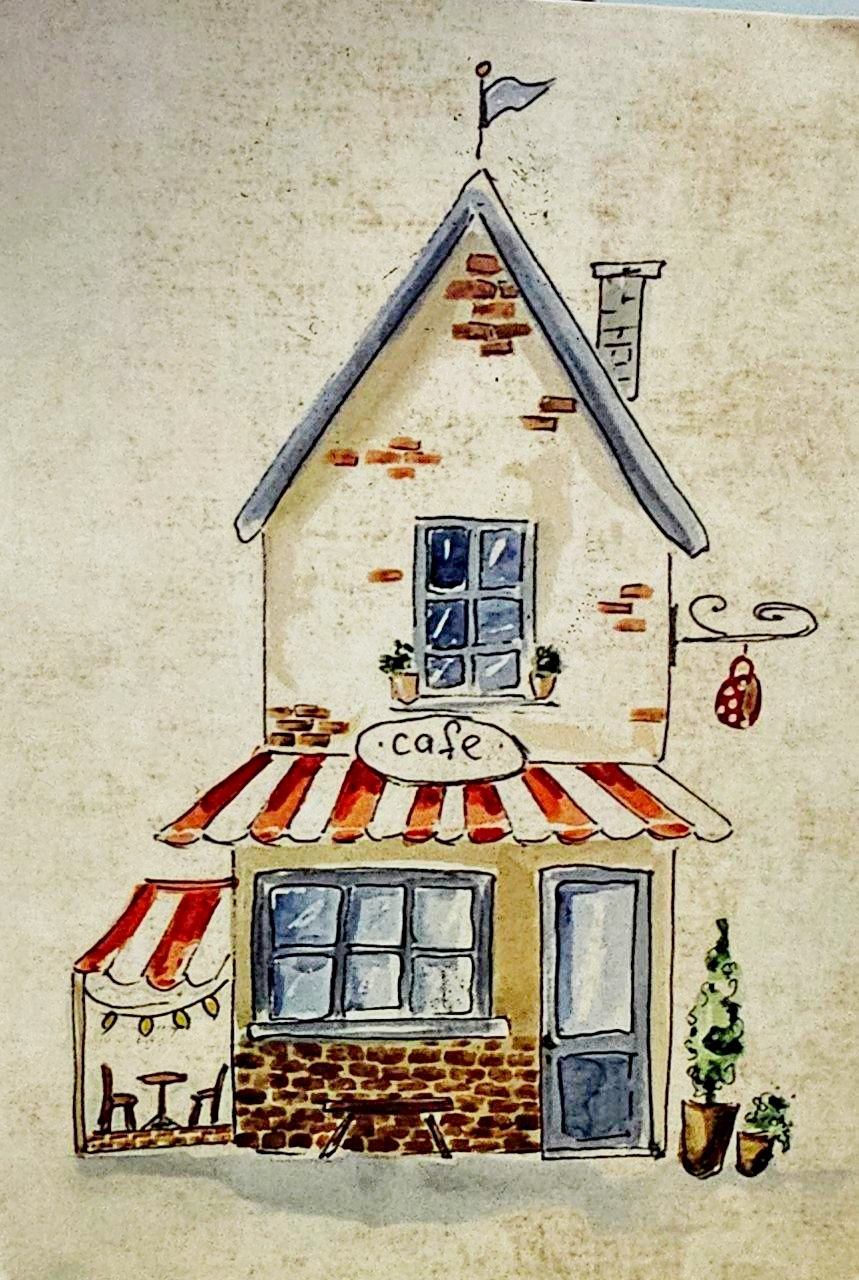 ·cafe·